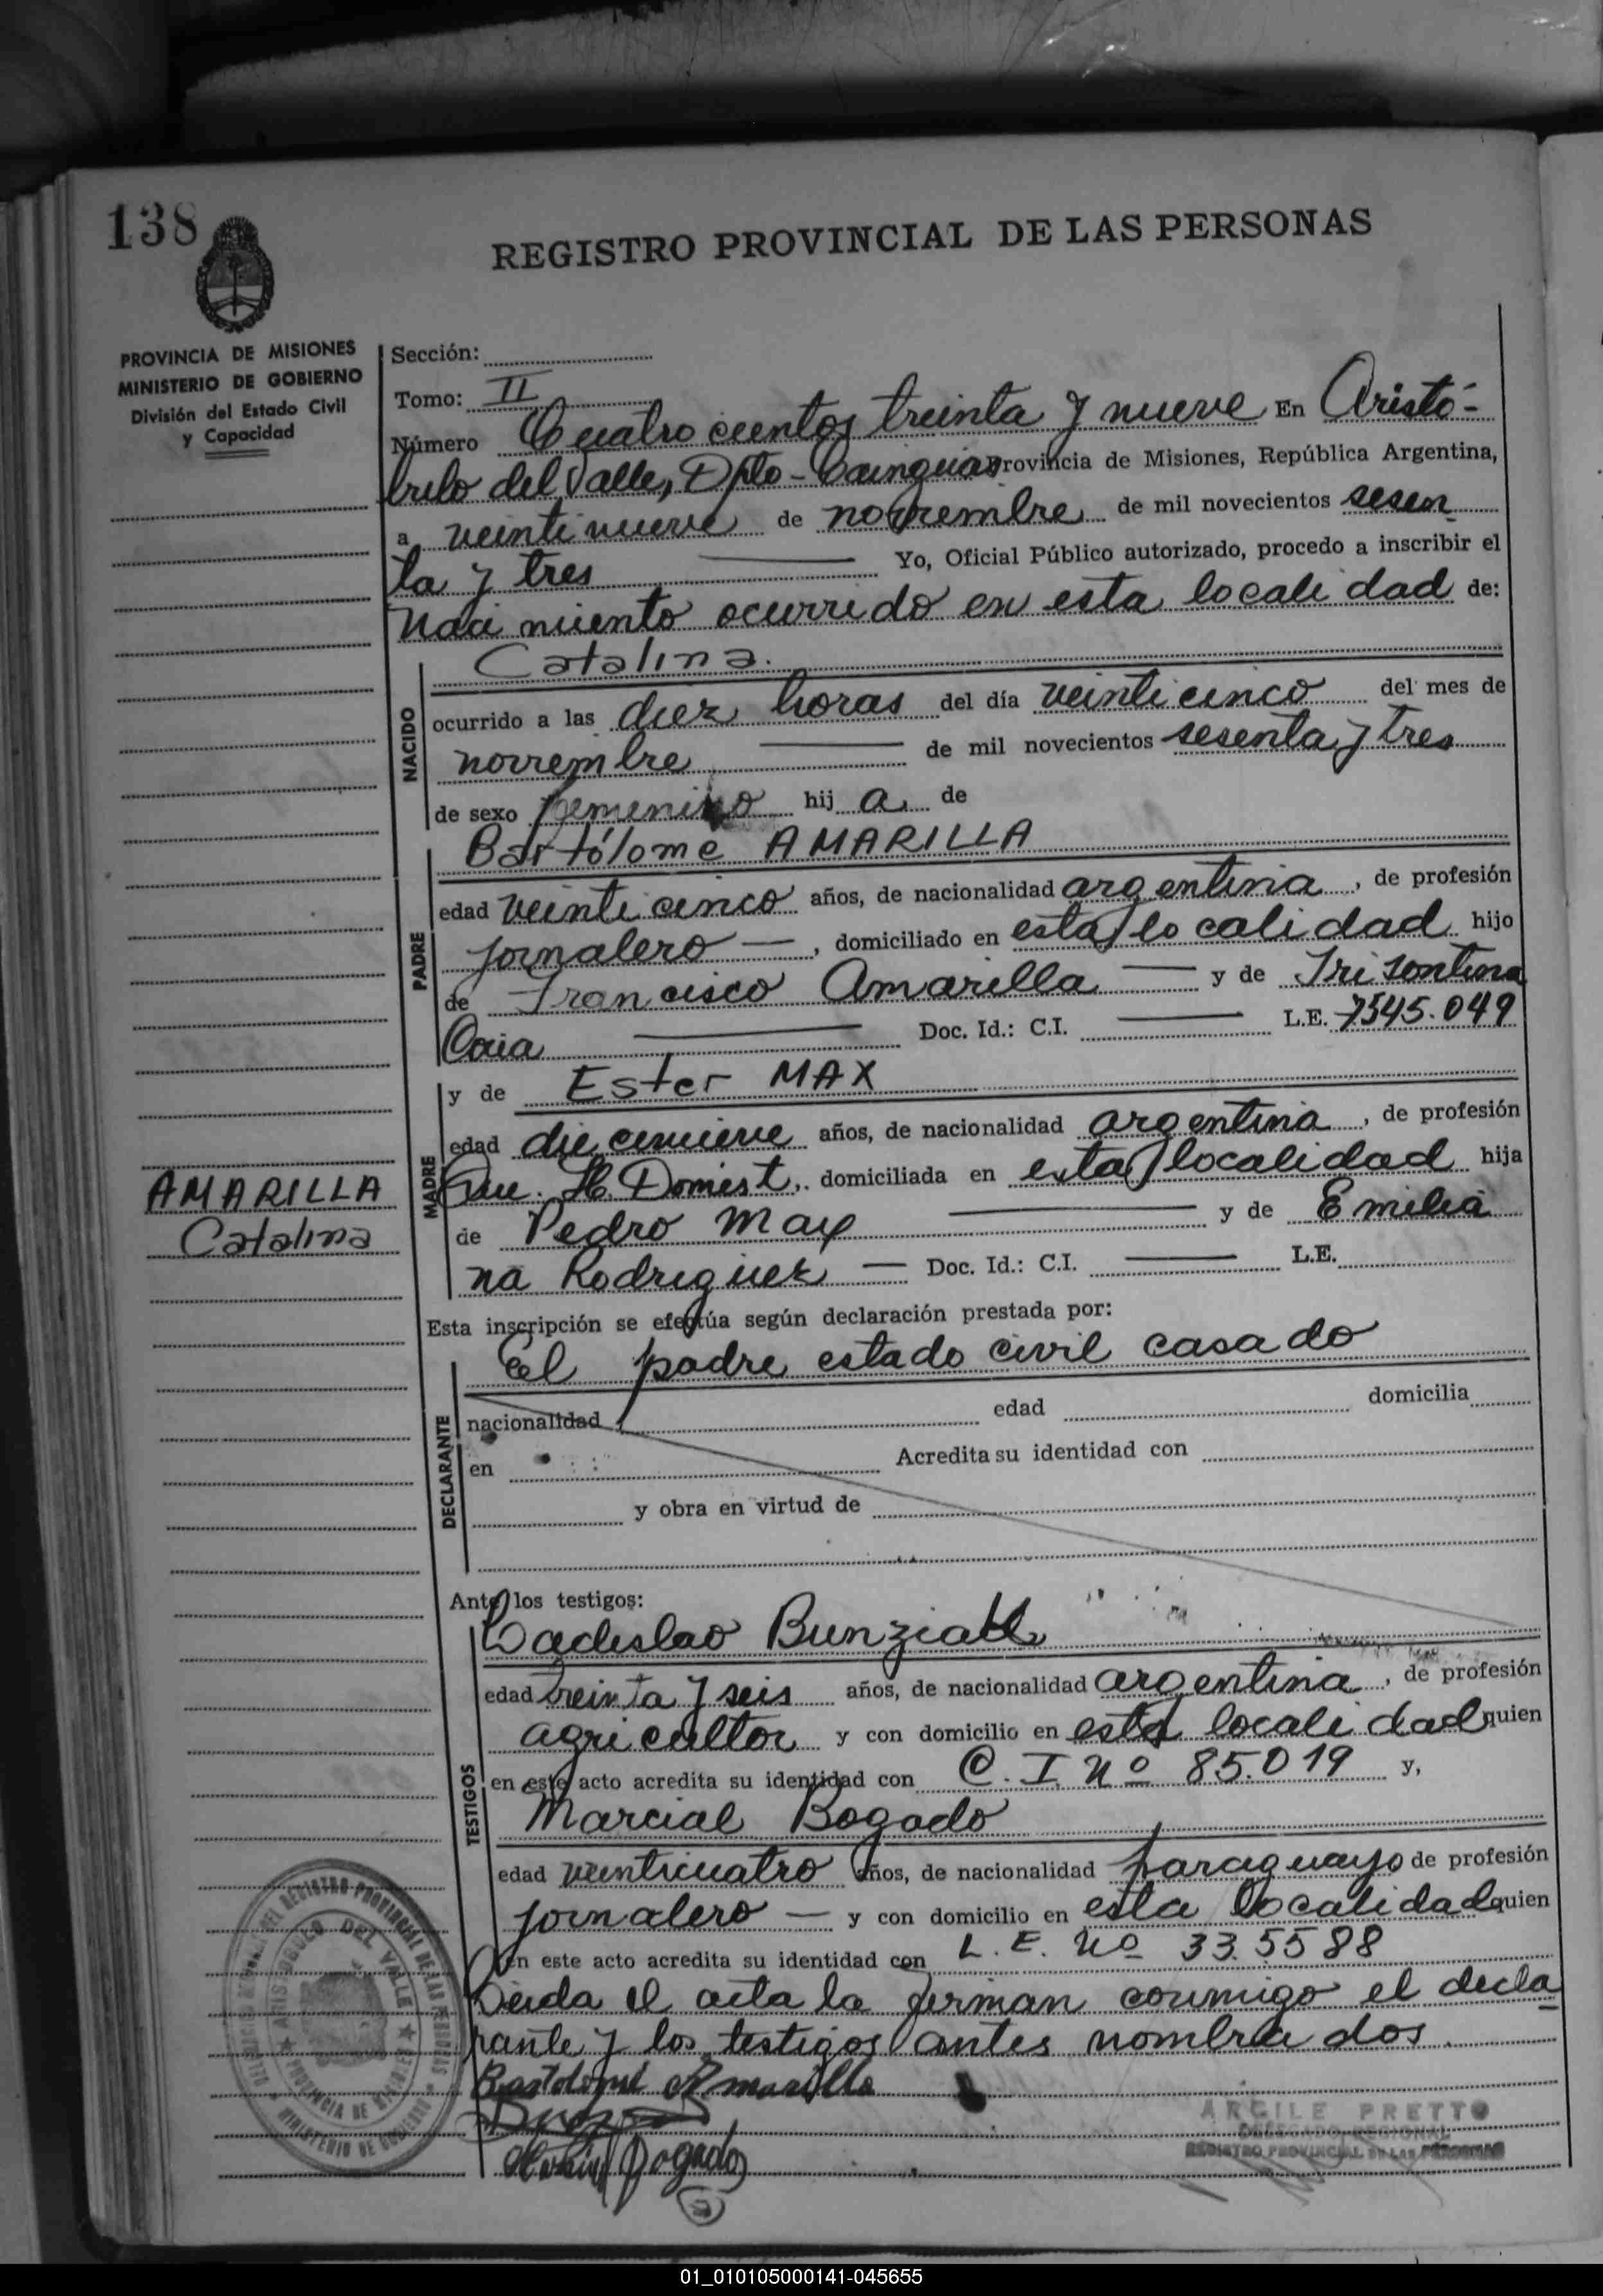 138
REGISTRO PROVINCIAL DE LAS PERSONAS
PROVINCIA DE MISIONES
MINISTERIO DE GOBIERNO
División del Estado Civil
y Capacidad
Sección:
Tomo: II
Número Cuatrocientos treinta y nueve En Aristó-
bulo del Valle, Dpto-Cainguas Provincia de Misiones, República Argentina,
a veintinueve de noviembre de mil novecientos sesen
ta y tres Yo, Oficial Público autorizado, procedo a inscribir el
Nacimiento ocurrido en esta localidad de:
NACIDO
Catalina.
ocurrido a las diez horas del día veinticinco del mes de
noviembre de mil novecientos sesenta y tres
de sexo femenino hij a de
PADRE
Bartólome AMARILLA
edad veinticinco años, de nacionalidad argentina, de profesión
jornalero —, domiciliado en esta localidad hijo
de Francisco Amarilla — y de
Doc. Id.: C.I. — L.E. 7545.049
MADRE
y de Ester MAX
edad diecinueve años, de nacionalidad argentina, de profesión
Domést, domiciliada en esta localidad hija
de Pedro Max — y de Emilia
na Rodriguez — Doc. Id.: C.I. — L.E.
AMARILLA
Catalina
Esta inscripción se efectúa según declaración prestada por:
DECLARANTE
El padre estado civil casado
nacionalidad edad domicilia
en Acredita su identidad con
y obra en virtud de
Ante los testigos:
TESTIGOS
Ladislao
edad treinta y seis años, de nacionalidad argentina, de profesión
agricultor y con domicilio en esta localidad quien
en este acto acredita su identidad con C. I. Nº 85.019 y,
Marcial Bogado
edad veinticuatro años, de nacionalidad paraguayo de profesión
jornalero — y con domicilio en esta localidad quien
en este acto acredita su identidad con L. E. Nº 33.5588
Leida el acta la firman conmigo el decla
rante y los testigos antes nombrados.
Bartolomé Amarilla
Bogado
ARGILE PRETTO
DELEGADO REGIONAL
REGISTRO PROVINCIAL DE LAS PERSONAS
ARISTOBULO DEL VALLE
PROVINCIA DE MISIONES
MINISTERIO DE GOBIERNO
01_010105000141-045655